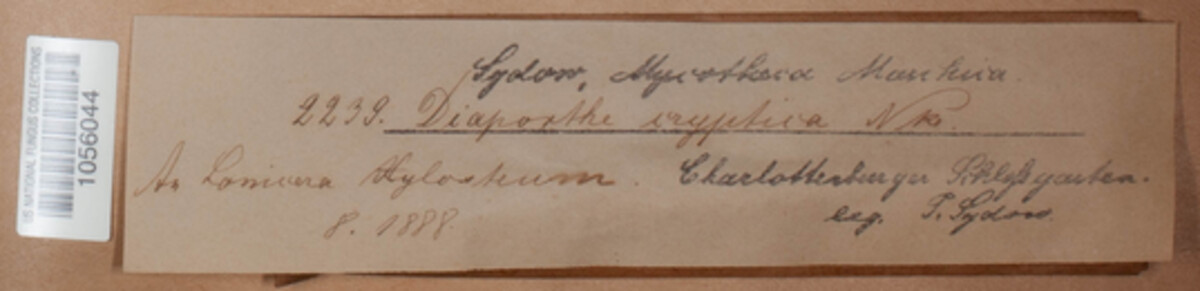 US NATIONAL FUNGUS COLLECTIONS
1056044
Sydow, Mycotheca Marchica.
2239. Diaporthe cryptica Nke.
An Lonicera Xylosteum. Charlottenburger Schloßgarten.
8. 1888. leg. P. Sydow.